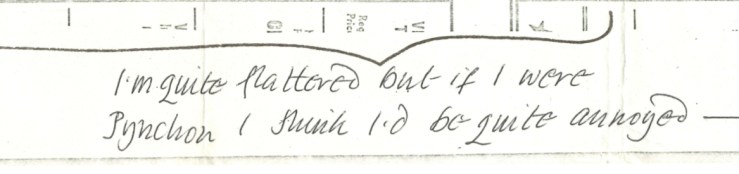 I'm quite flattered but if I were
Pynchon I think I'd be quite annoyed —